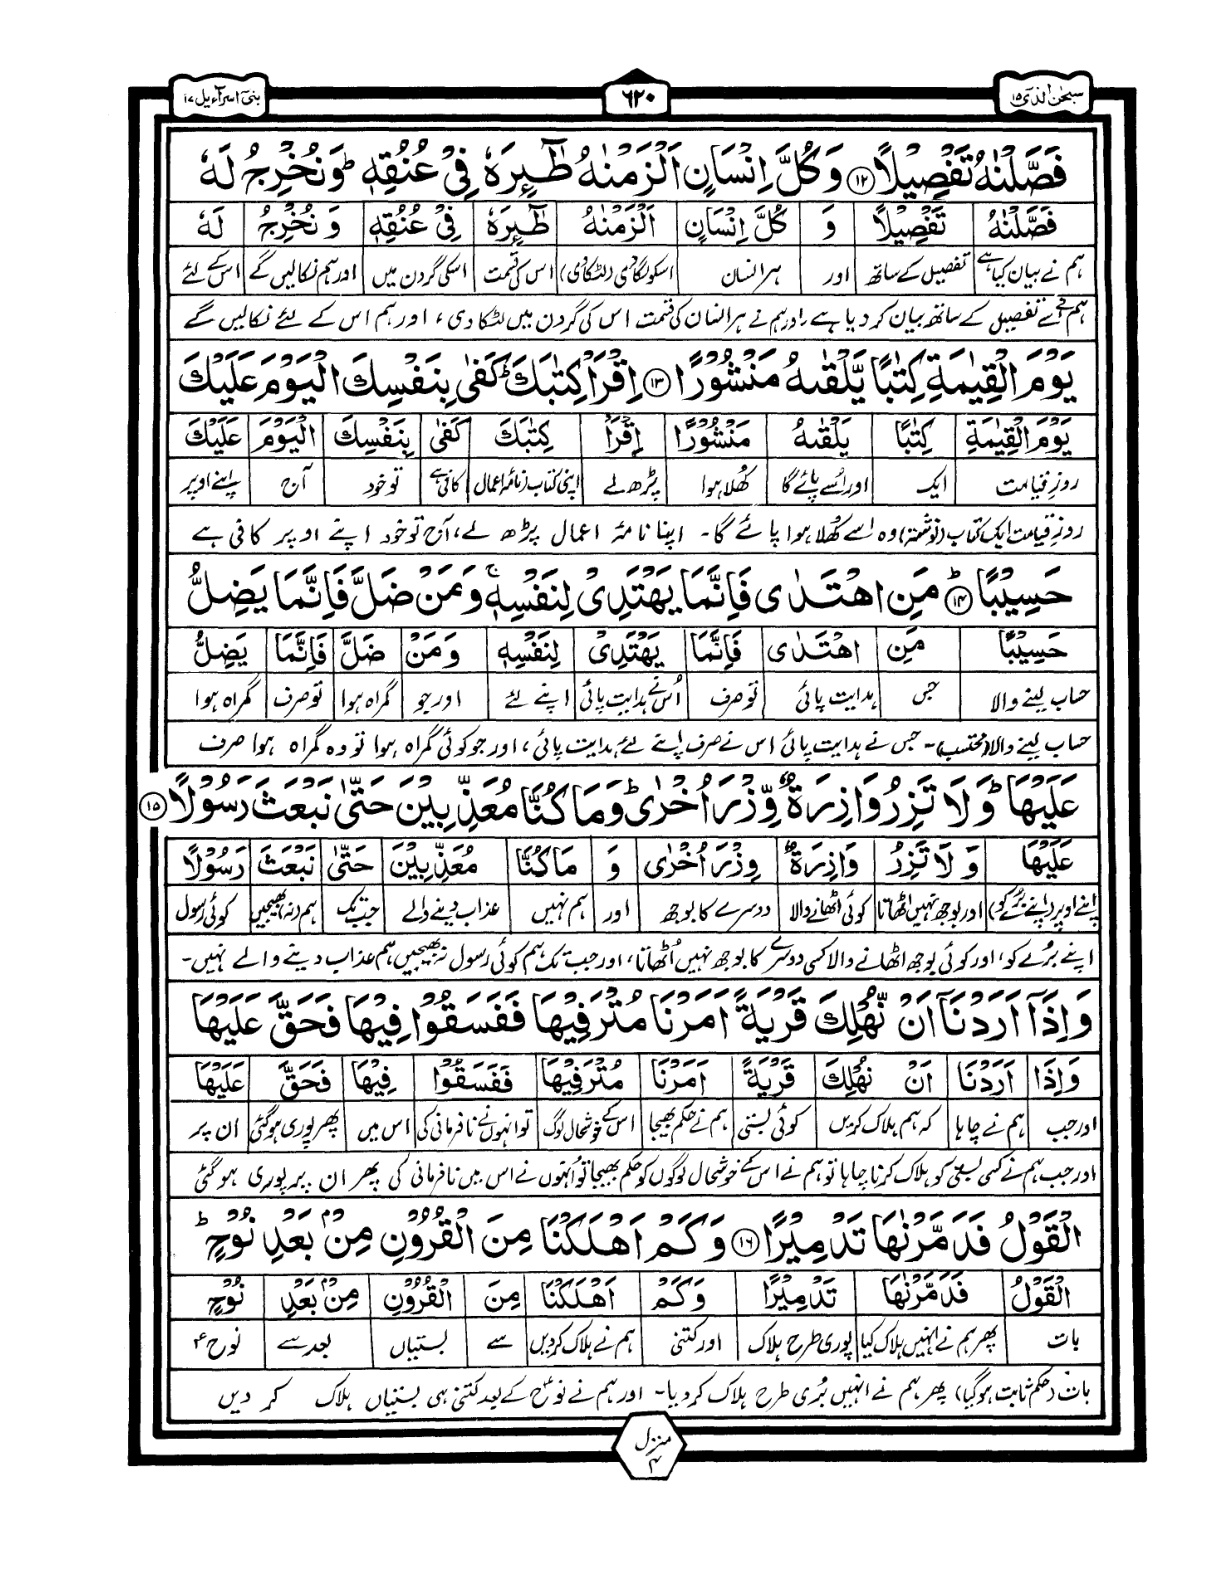 سبحٰن الذیٓ ۱۵
۶۲۰
بنیٓ اسرآءیل ۱۷
فَصَّلْنٰهُ تَفْصِیْلًا ⑫ وَ كُلَّ اِنْسَانٍ اَلْزَمْنٰهُ طٰٓىِٕرَهٗ فِیْ عُنُقِهٖ ؕ وَ نُخْرِجُ لَهٗ
فَصَّلْنٰهُ تَفْصِیْلًا وَ كُلَّ اِنْسَانٍ اَلْزَمْنٰهُ طٰٓىِٕرَهٗ فِیْ عُنُقِهٖ وَ نُخْرِجُ لَهٗ
ہم نے بیان کیا ہے تفصیل کے ساتھ اور ہر انسان اسکو لگادی (لٹکادی) اس کی قسمت اسکی گردن میں اور ہم نکالیں گے اس کے لئے
ہم نے اسے تفصیل کے ساتھ بیان کر دیا ہے اور ہم نے ہر انسان کی قسمت اس کی گردن میں لٹکا دی، اور ہم اس کے لئے نکالیں گے
یَوْمَ الْقِیٰمَةِ كِتٰبًا یَّلْقٰىهُ مَنْشُوْرًا ⑬ اِقْرَاْ كِتٰبَكَ ؕ كَفٰى بِنَفْسِكَ الْیَوْمَ عَلَیْكَ
یَوْمَ الْقِیٰمَةِ كِتٰبًا یَلْقٰىهُ مَنْشُوْرًا اِقْرَاْ كِتٰبَكَ كَفٰى بِنَفْسِكَ الْیَوْمَ عَلَیْكَ
روزِ قیامت ایک اور اسے پائے گا کھلا ہوا پڑھ لے اپنی کتاب (نامۂ اعمال) کافی ہے تو خود آج اپنے اوپر
روزِ قیامت ایک کتاب (نوشتہ) وہ اسے کھلا ہوا پائے گا۔ اپنا نامۂ اعمال پڑھ لے، آج تو خود اپنے اوپر کافی ہے
حَسِیْبًا ؕ ⑭ مَنِ اهْتَدٰى فَاِنَّمَا یَهْتَدِیْ لِنَفْسِهٖ ۚ وَ مَنْ ضَلَّ فَاِنَّمَا یَضِلُّ
حَسِیْبًا مَنِ اهْتَدٰى فَاِنَّمَا یَهْتَدِیْ لِنَفْسِهٖ وَ مَنْ ضَلَّ فَاِنَّمَا یَضِلُّ
حساب لینے والا جس ہدایت پائی تو صرف اُس نے ہدایت پائی اپنے لئے اور جو گمراہ ہوا تو صرف گمراہ ہوا
حساب لینے والا (محتسب)۔ جس نے ہدایت پائی اس نے صرف اپنے لئے ہدایت پائی، اور جو کوئی گمراہ ہوا تو وہ گمراہ ہوا صرف
عَلَیْهَا ؕ وَ لَا تَزِرُ وَازِرَةٌ وِّزْرَ اُخْرٰى ؕ وَ مَا كُنَّا مُعَذِّبِیْنَ حَتّٰى نَبْعَثَ رَسُوْلًا ⑮
عَلَیْهَا وَ لَا تَزِرُ وَازِرَةٌ وِزْرَ اُخْرٰى وَ مَا كُنَّا مُعَذِّبِیْنَ حَتّٰى نَبْعَثَ رَسُوْلًا
اپنے اوپر (اپنے بُرے کو) اور بوجھ نہیں اٹھاتا کوئی اٹھانے والا دوسرے کا بوجھ اور ہم نہیں عذاب دینے والے جب تک ہم (نہ) بھیجیں کوئی رسول
اپنے بُرے کو، اور کوئی بوجھ اٹھانے والا کسی دوسرے کا بوجھ نہیں اُٹھاتا، اور جب تک ہم کوئی رسول نہ بھیجیں ہم عذاب دینے والے نہیں۔
وَ اِذَاۤ اَرَدْنَاۤ اَنْ نُّهْلِكَ قَرْیَةً اَمَرْنَا مُتْرَفِیْهَا فَفَسَقُوْا فِیْهَا فَحَقَّ عَلَیْهَا
وَ اِذَا اَرَدْنَا اَنْ نُهْلِكَ قَرْیَةً اَمَرْنَا مُتْرَفِیْهَا فَفَسَقُوْا فِیْهَا فَحَقَّ عَلَیْهَا
اور جب ہم نے چاہا کہ ہم ہلاک کریں کوئی بستی ہم نے حکم بھیجا اس کے خوشحال لوگ تو انہوں نے نافرمانی کی اس میں پھر پوری ہوگئی ان پر
اور جب ہم نے کسی بستی کو ہلاک کرنا چاہا تو ہم نے اس کے خوشحال لوگوں کو حکم بھیجا تو اُنہوں نے اس میں نافرمانی کی پھر ان پر پوری ہوگئی
الْقَوْلُ فَدَمَّرْنٰهَا تَدْمِیْرًا ⑯ وَ كَمْ اَهْلَكْنَا مِنَ الْقُرُوْنِ مِنْۢ بَعْدِ نُوْحٍ ؕ
الْقَوْلُ فَدَمَّرْنٰهَا تَدْمِیْرًا وَ كَمْ اَهْلَكْنَا مِنَ الْقُرُوْنِ مِنْۢ بَعْدِ نُوْحٍ
بات پھر ہم نے انہیں ہلاک کیا پوری طرح ہلاک اور کتنی ہم نے ہلاک کردیں سے بستیاں بعد سے نوحؑ
بات (حکم ثابت ہوگیا) پھر ہم نے انہیں بُری طرح ہلاک کر دیا۔ اور ہم نے نوحؑ کے بعد کتنی ہی بستیاں ہلاک کر دیں
منزل ۴